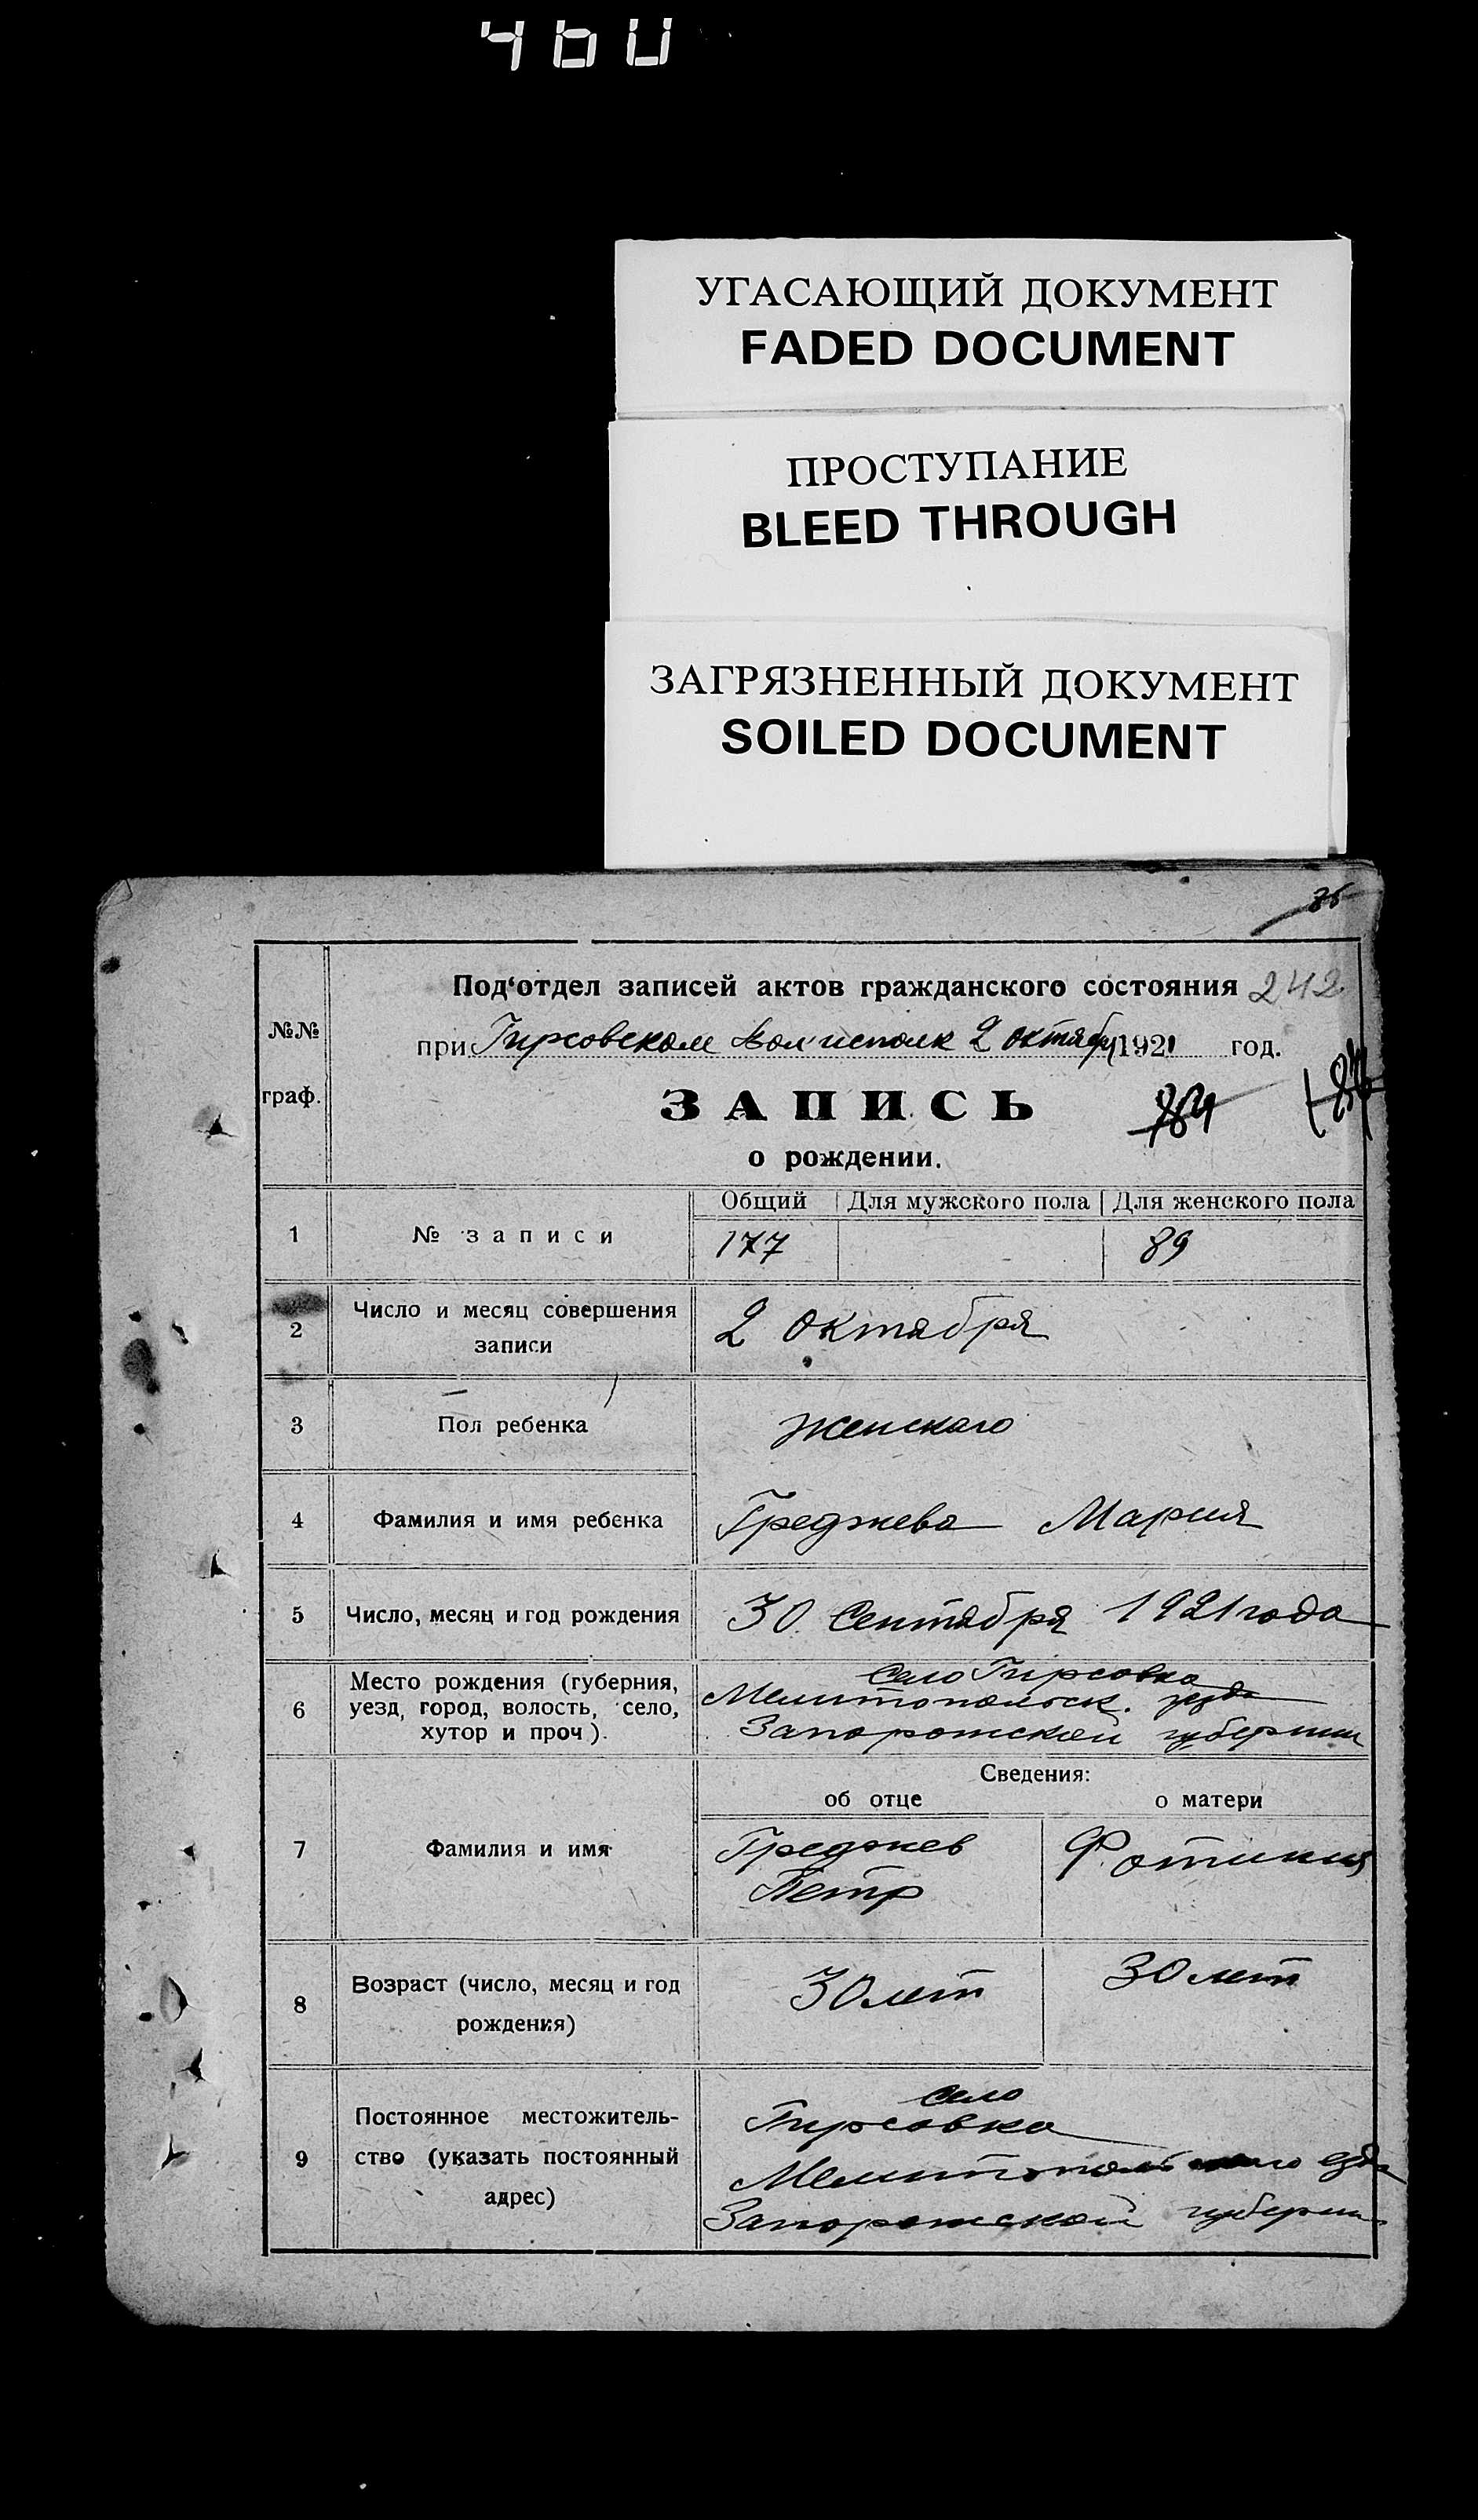 460
УГАСАЮЩИЙ ДОКУМЕНТ
FADED DOCUMENT
ПРОСТУПАНИЕ
BLEED THROUGH
ЗАГРЯЗНЕННЫЙ ДОКУМЕНТ
SOILED DOCUMENT
№№ граф.
Под‘отдел записей актов гражданского состояния 242
при Гирсовском Волисполк 2 октября 1921 год.
ЗАПИСЬ
о рождении.
Общий Для мужского пола Для женского пола
1 № записи 177 89
2 Число и месяц совершения
записи
2 Октября
3 Пол ребенка Женскаго
4 Фамилия и имя ребенка Греджева Мария
5 Число, месяц и год рождения 30 Сентября 1921 года
6 Место рождения (губерния,
уезд, город, волость, село,
хутор и проч).
Село Гирсовка
Мелитопольск. уезда
Запорожской губернии
Сведения:
об отце о матери
7 Фамилия и имя
Греджев
Петр
Фотиния
8 Возраст (число, месяц и год
рождения)
30 лет 30 лет
9 Постоянное местожитель-
ство (указать постоянный
адрес)
село
Гирсовка
Мелитопольского
Запорожской губерни